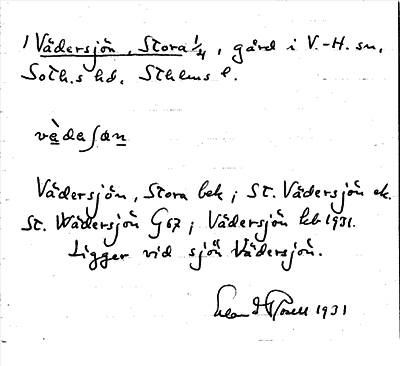 1 Vädersjön, Stora 1/4, gård i V.-H. sn,
Soth.s hd. Sthlms l.
vä̀dəʃən
Vädersjön, Stora bek; St. Vädersjön ek.
St. Wädersjön G67; Vädersjön kb 1931.
Ligger vid sjön Vädersjön.
1931